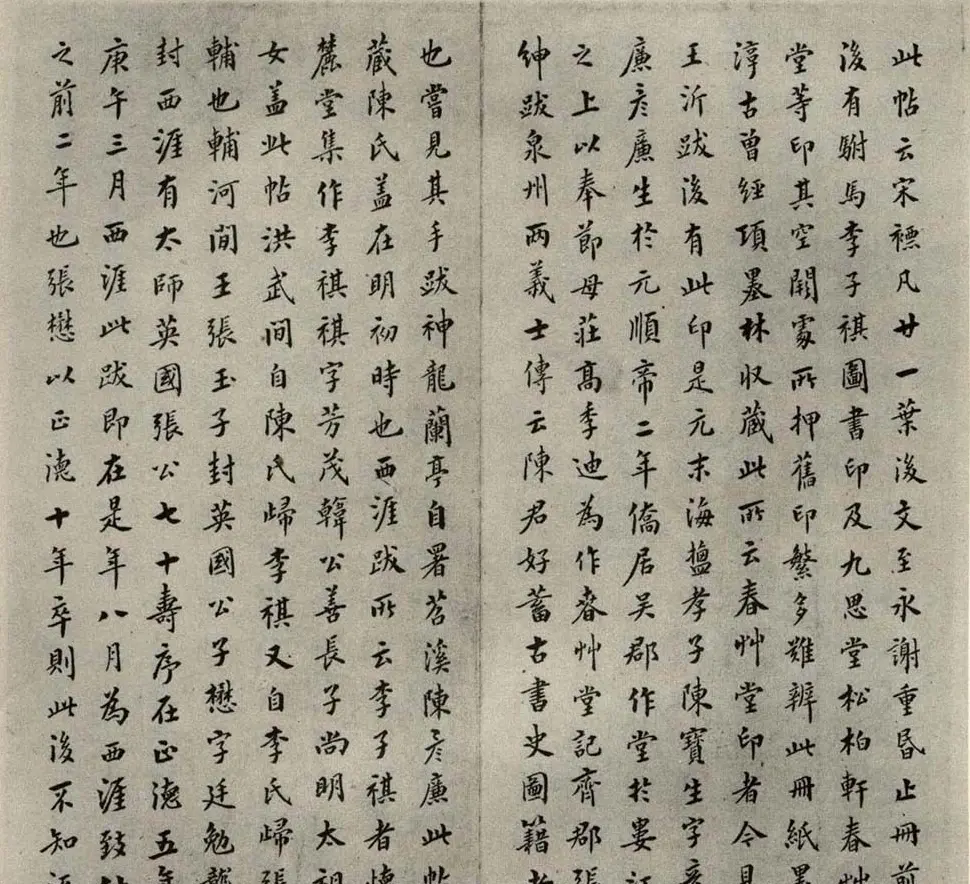 此帖云宋褾凡廿一葉後文至永謝重昏止冊前
後有駙馬李子祺圖書印及九思堂松柏軒春艸
堂等印其空闕處所押舊印繁多難辨此冊紙墨
淳古曾經項墨林収蔵此所云春艸堂印者今見
王沂跋後有此印是元末海鹽孝子陳寶生字彥
廉彥廉生於元順帝二年僑居吴郡作堂於婁江
之上以奉節母莊髙季迪為作春艸堂記齊郡張
紳跋泉州两義士傳云陳君好蓄古書史圖籍
也嘗見其手跋神龍蘭亭自署苕溪陳彥廉此帖
蔵陳氏盖在明初時也西涯跋所云李子祺者懐
麓堂集作李祺祺字芳茂韓公善長子尚明太祖
女盖此帖洪武間自陳氏歸李祺又自李氏歸張
輔也輔河間王張玉子封英國公子懋字廷勉襲
封西涯有太師英國張公七十壽序在正徳五年
庚午三月西涯此跋即在是年八月為西涯致仕
之前二年也張懋以正徳十年卒則此後不知